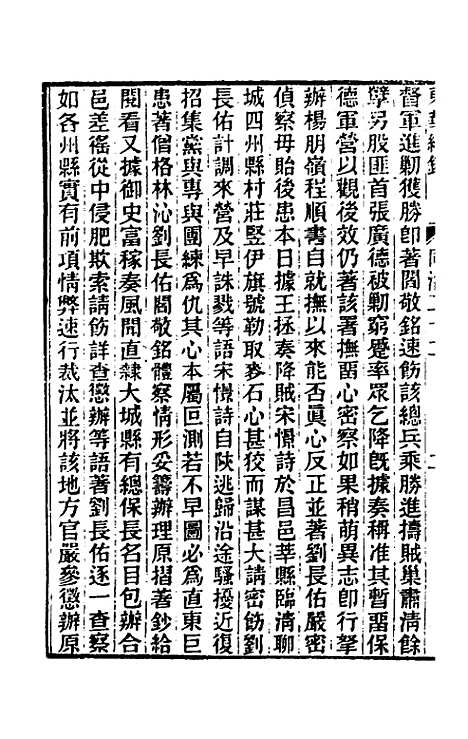 督軍進剿獲勝卽著閻敬銘速飭該總兵乘勝進擣賊巢肅淸餘
孽另股匪首張廣德被剿窮蹙率眾乞降旣據奏稱准其暫畱保
德軍營以觀後效仍著該署撫畱心密察如果稍萌異志卽行拏
辦楊朋嶺程順書自就撫以來能否眞心反正並著劉長佑嚴密
偵察毋貽後患本日據王拯奏降賊宋憬詩於昌邑莘縣臨淸聊
城四州縣村莊竪伊旗號勒取麥石心甚狡而謀甚大請密飭劉
長佑計調來營及早誅戮等語宋憬詩自陝逃歸沿途騷擾近復
招集黨與專與團練爲仇其心本屬叵測若不早圖必爲直東巨
患著僧格林沁劉長佑閻敬銘體察情形妥籌辦理原摺著鈔給
閱看又據御史富稼奏風聞直隸大城縣有總保長名目包辦合
邑差徭從中侵肥欺索請飭詳查懲辦等語著劉長佑逐一查察
如各州縣實有前項情弊速行裁汰並將該地方官嚴參懲辦原